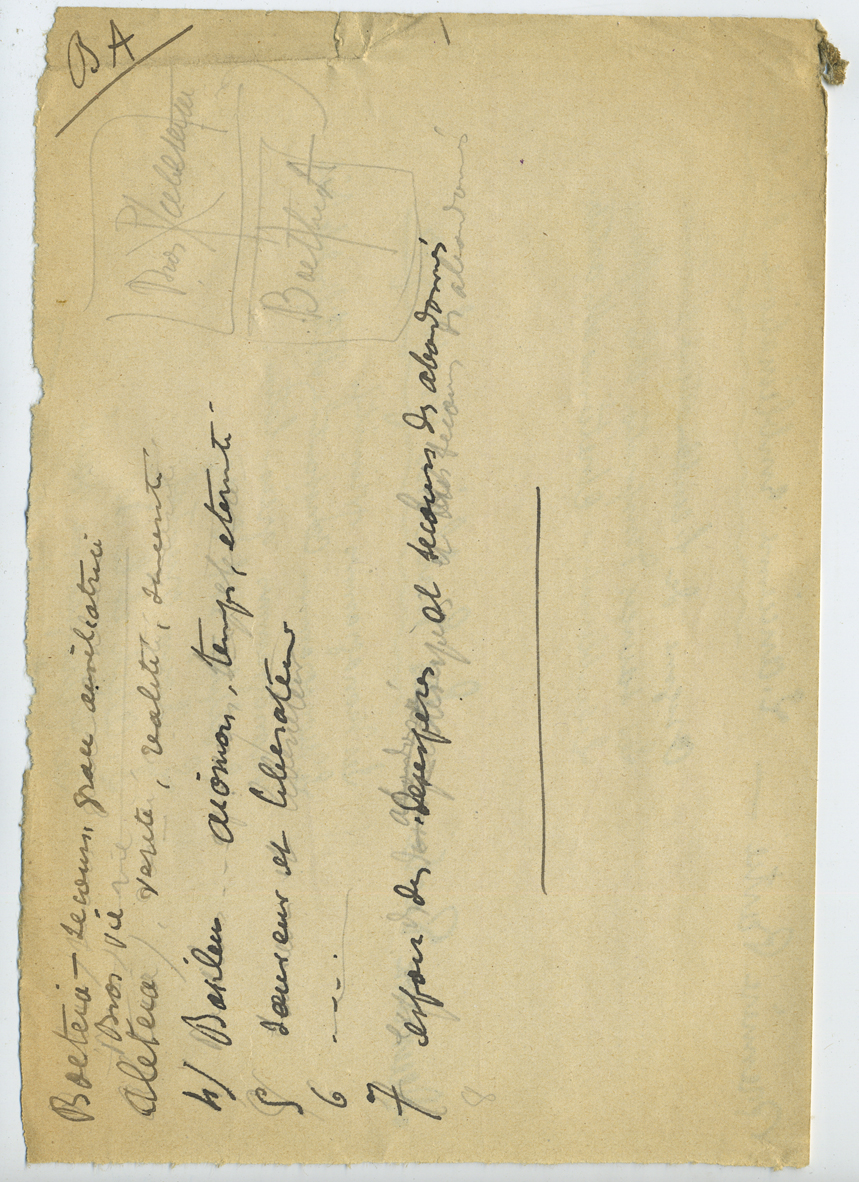 BA
Bios
Boethia
Boeteia – secours, grace auxiliatrice
Bios vie
Aleteia verité, realité, sincerité
4/ Basileu aiomon, temps, eternité
5 sauveur et liberateur
6 –
7 espoir des desesperes et secours des abandonnés
8